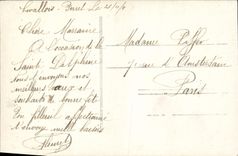 Levallois-Perret Le 21/1/16
Chère Marraine
A l'occasion de la
Saint Delphine
nous t'envoyons nos
meilleurs vœux et
souhaits de bonne fêt
Ton filleul affectionné
t'envoye mille baisers
Henri
Madame
rue d'Amsterdam
Paris